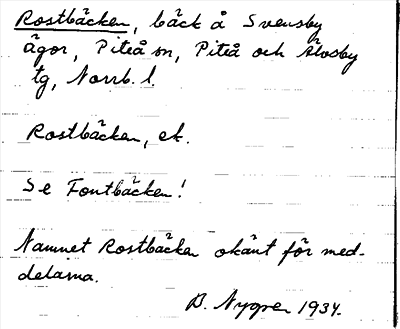 Rostbäcken, bäck å Svensby
ägor, Piteå sn, Piteå och Älvsby
tg, Norrb. l.
Rostbäcken, ek.
Se Fontbäcken!
Namnet Rostbäcken okänt för med-
delarna.
B. Nygren 1934.